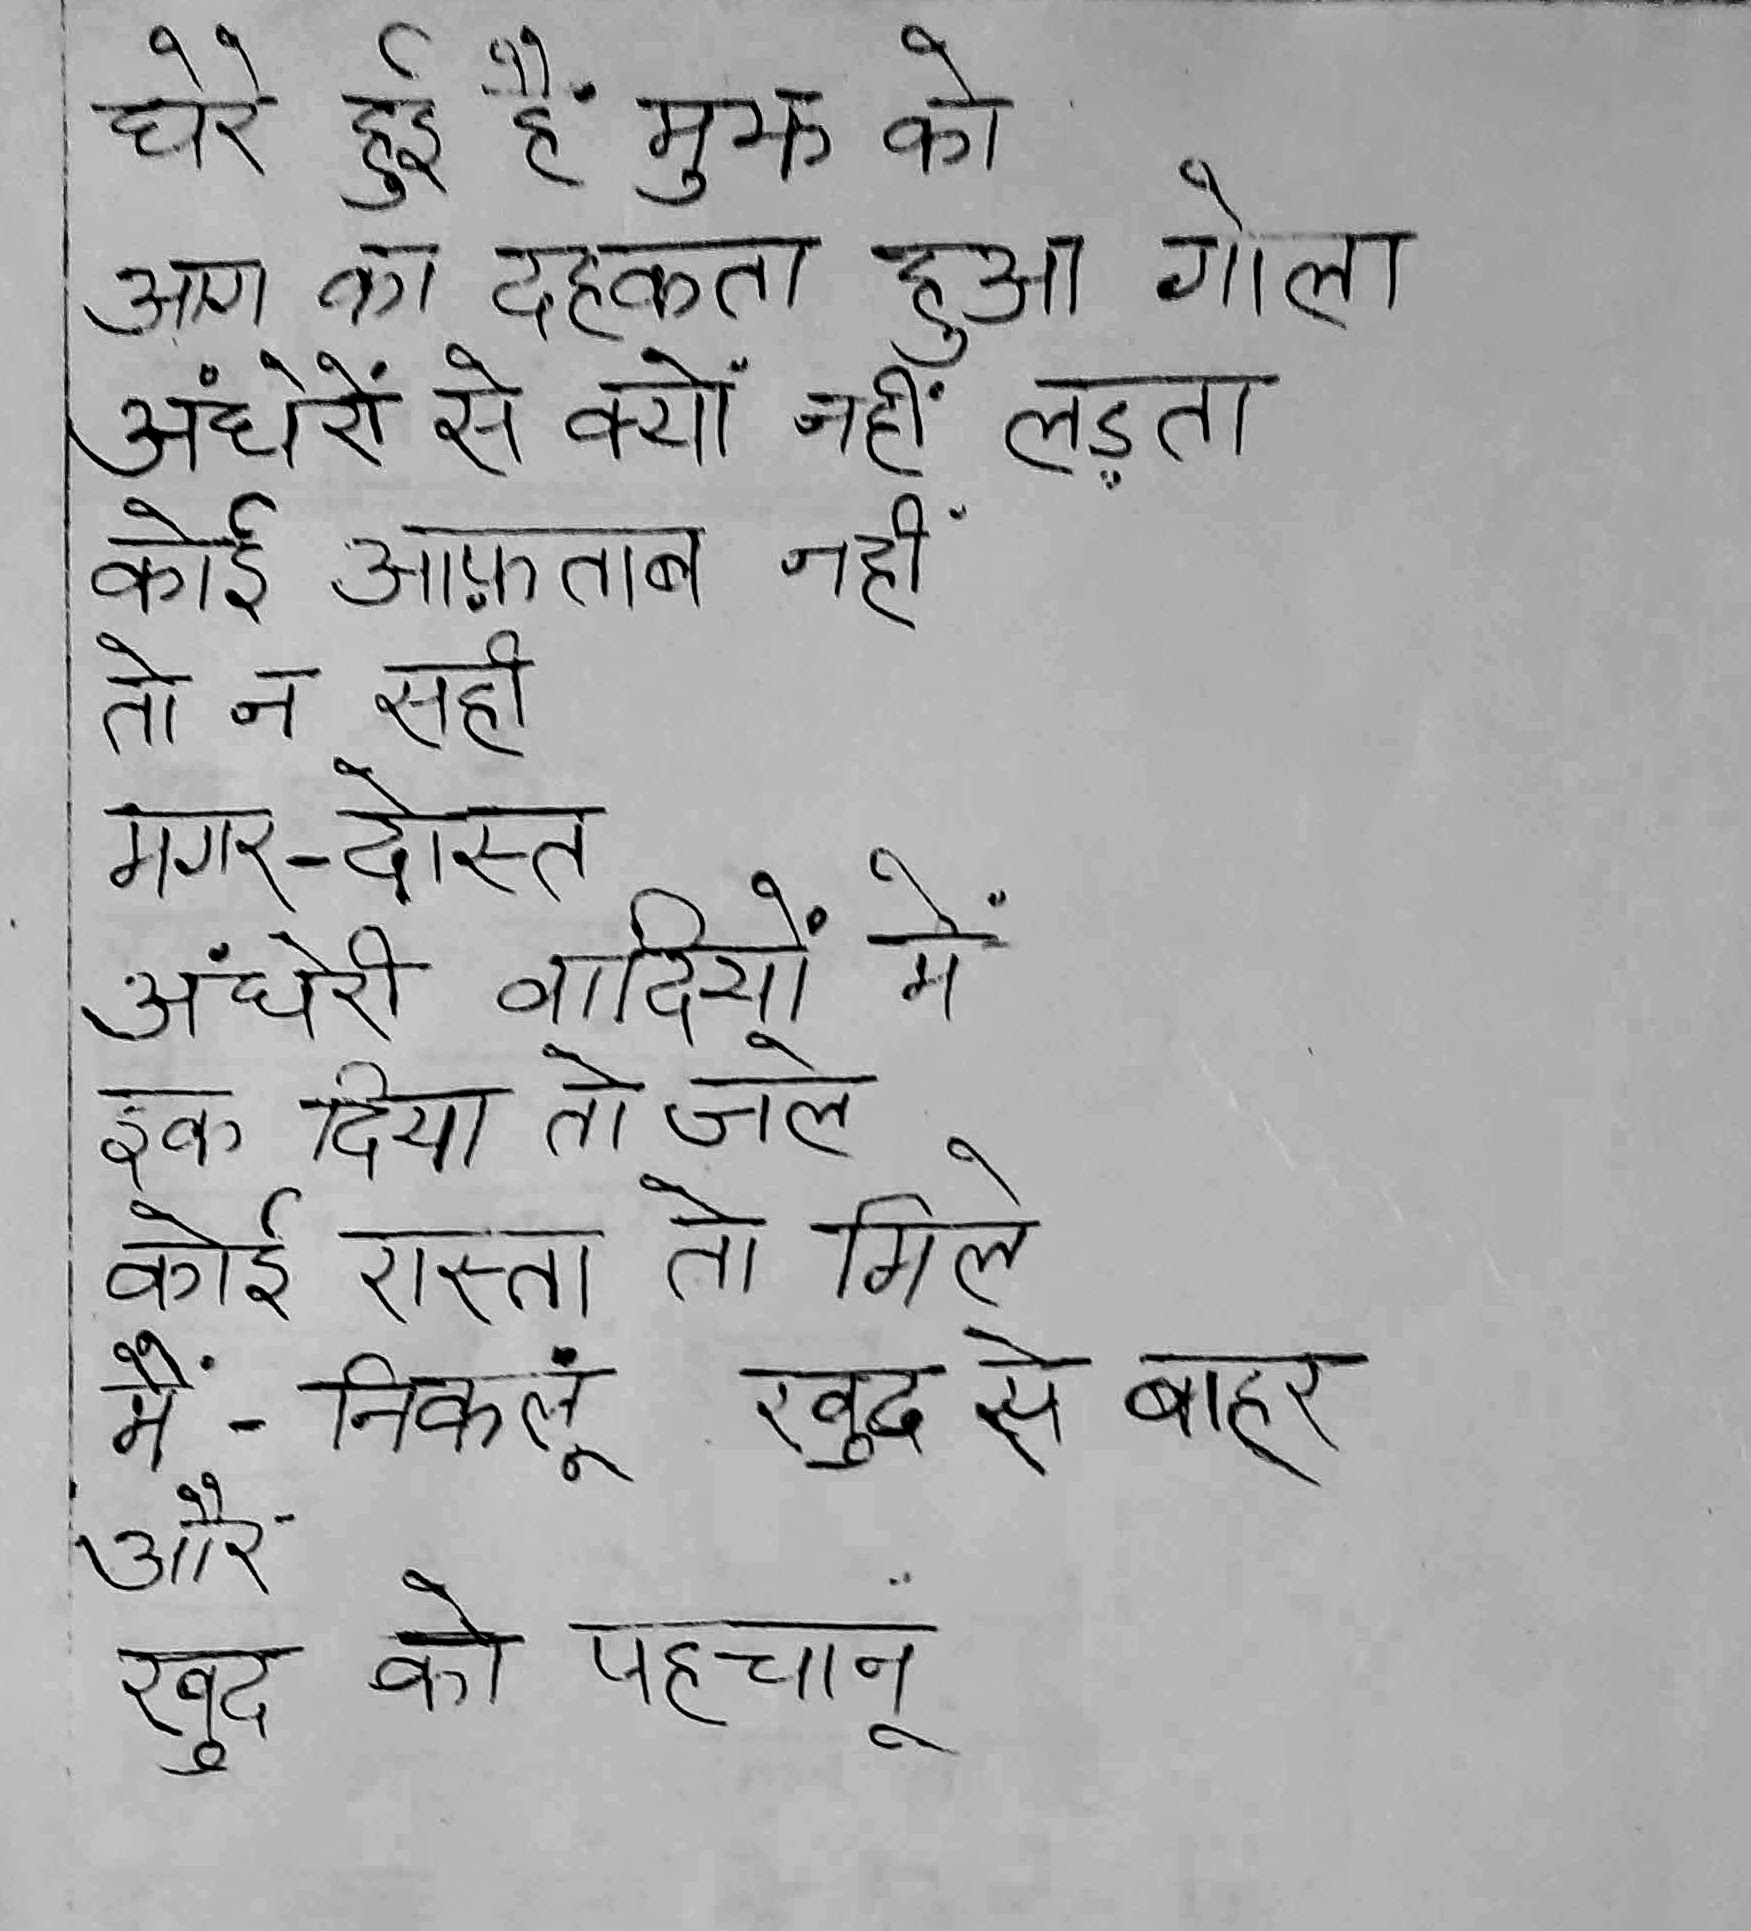 घेरे हुई हैं मुझ को
आग का दहकता हुआ गोला
अंधेरों से क्यों नहीं लड़ता
कोई आफ़ताब नहीं
तो न सही
मगर-दोस्त
अंधेरी वादियों में
इक दिया तो जले
कोई रास्ता तो मिले
मैं - निकलूं खुद से बाहर
और
खुद को पहचानू